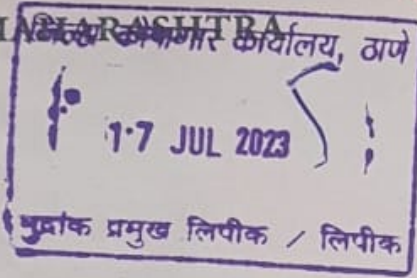 MAHARASHTRA
जिल्हा कोषागार कार्यालय, ठाणे
17 JUL 2023
मुद्रांक प्रमुख लिपीक / लिपीक